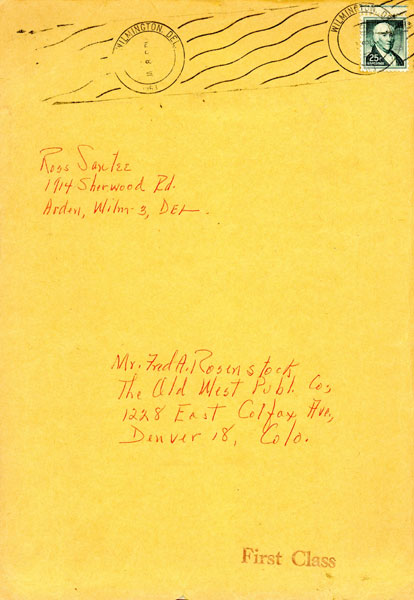 WILMINGTON, DEL.
WILMINGTON, DEL.
25¢
Ross Santee
1914 Sherwood Rd.
Arden, Wilm-3, DEL.
Mr. Fred A. Rosenstock
The Old West Publ. Co,
1228 East Colfax Ave,
Denver 18, Colo.
First Class